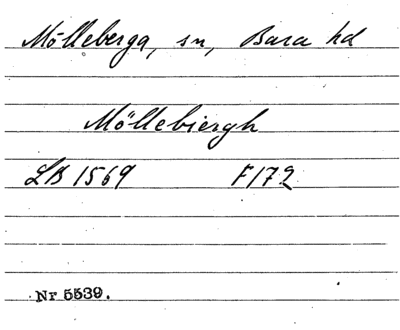 Mölleberga, sn, Bara hd
Möllebiergh
LB 1569 F172
Nr 5539.